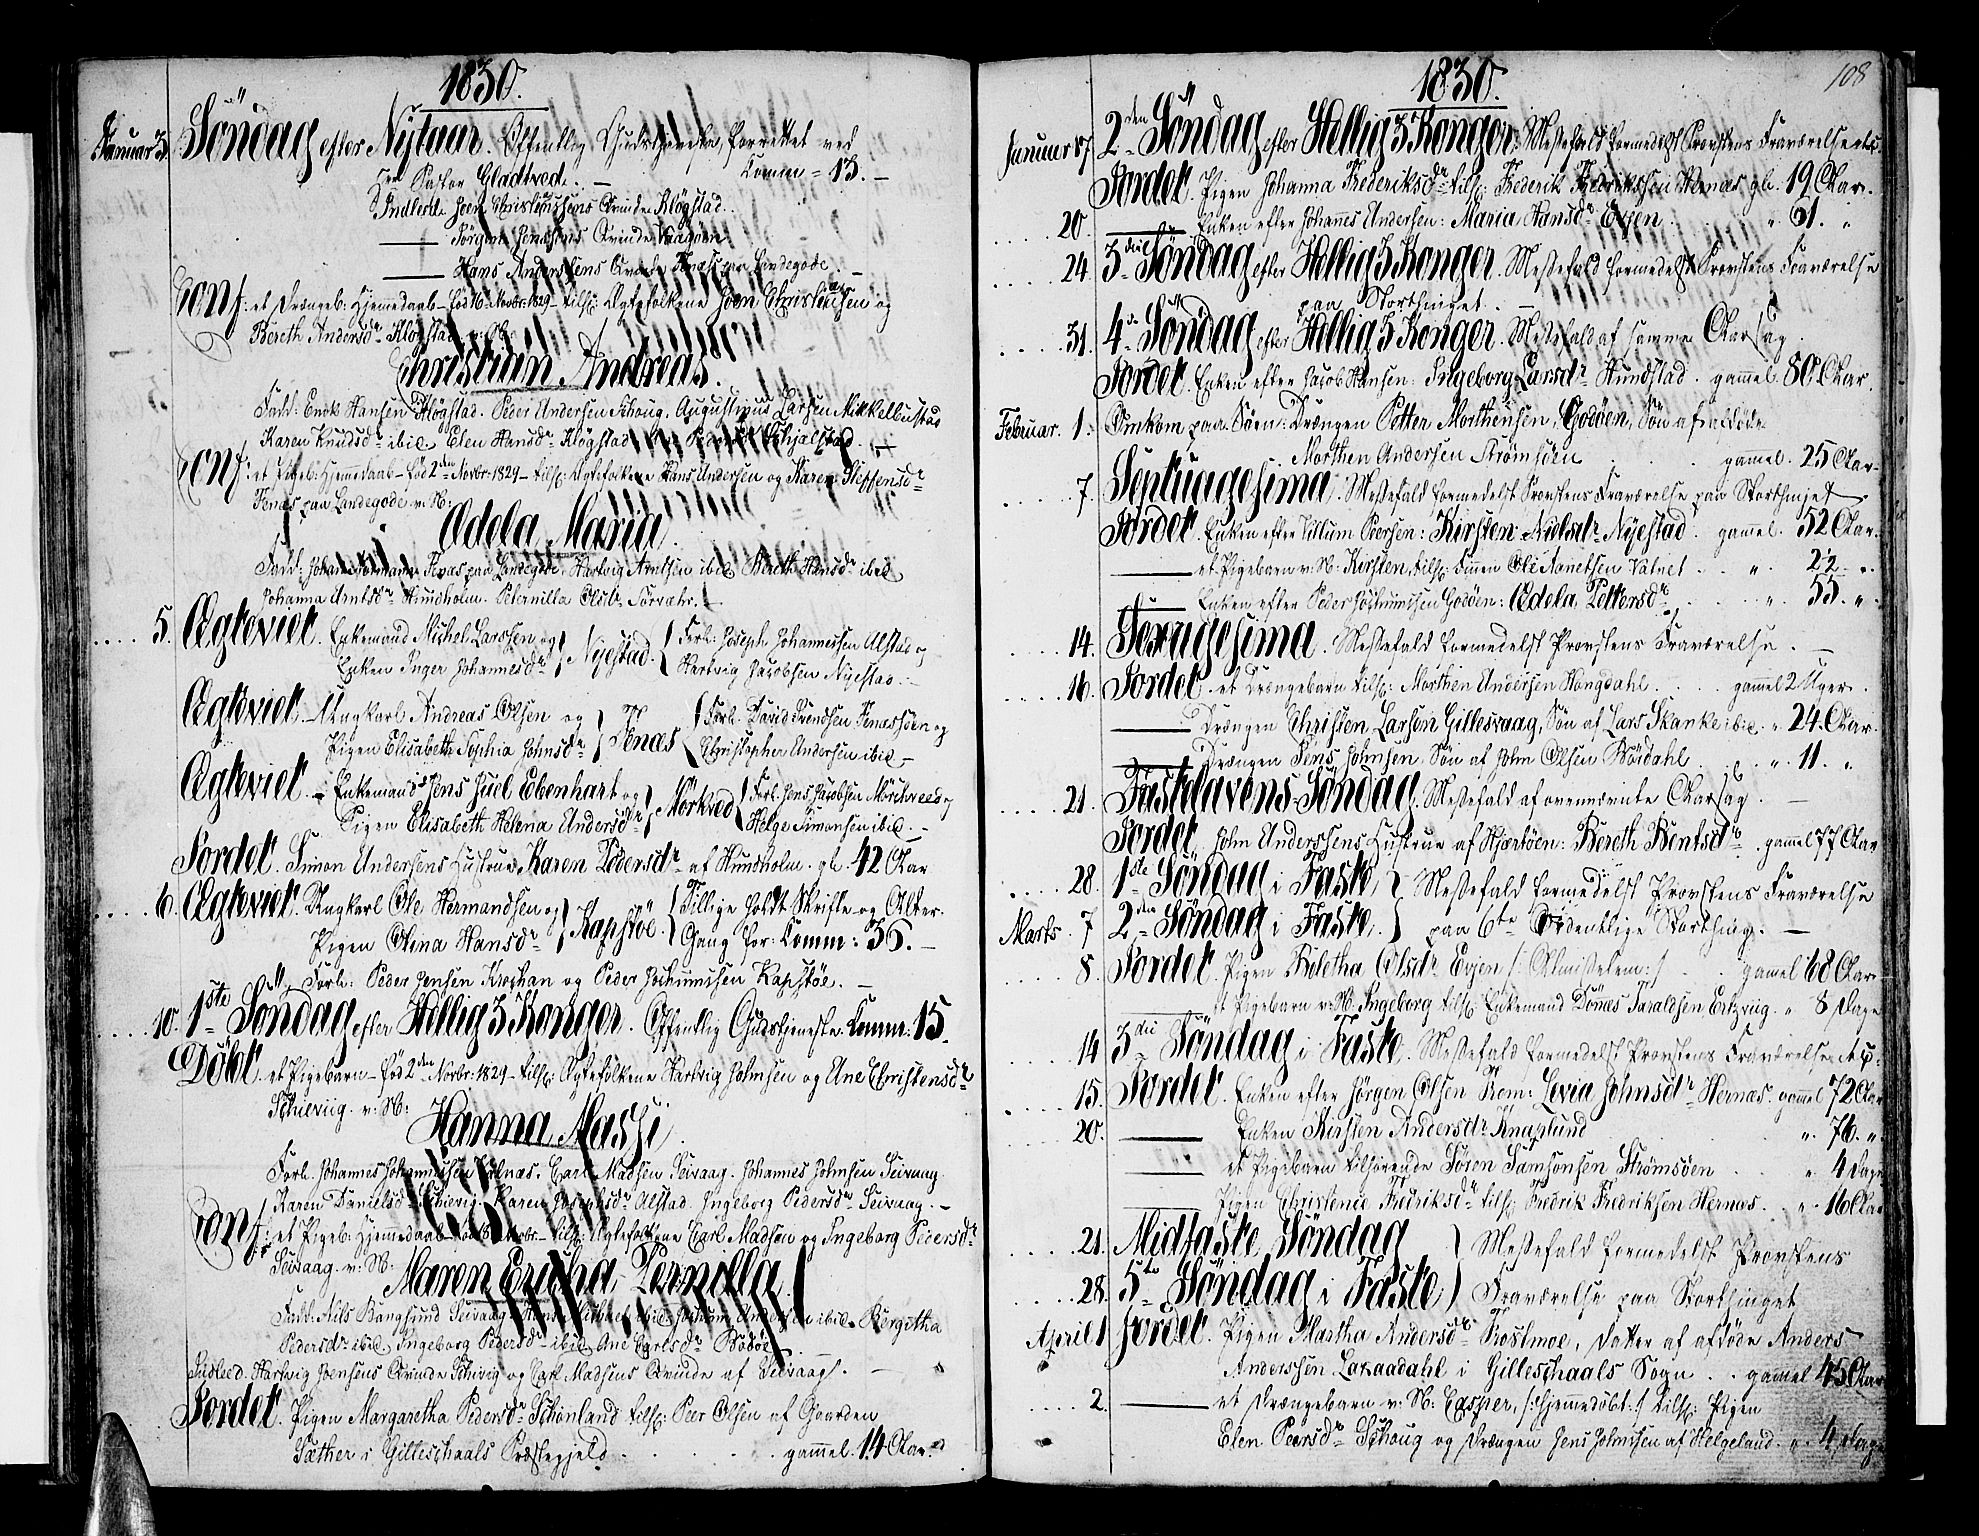 1830.
Januar 3. Söndag efter Nytaar. Offentlig Gudstjeneste, forrettet ved
Hr: Pastor Gladtved. — Comm = 13. —
Indledte Joen Christensens Qvinde Klögstad.
——— Jörgen Jensens Qvinde Vaagöen
——— Hans Anderssens Qvinde Fenæs paa Landegode. —
Conf: et Drængeb: hjemedaab – föd 16 Novbr: 1829 – tilh: Ægtefolkene Joen Christensen og
Bereth Andersdr Klögstad. v: N:
Christian Andreas.
Fadd: Enok Hansen Klögstad. Peder Andersen Schoug. Augustinus Larsen Mikkelbustad
Karen Knudsdr ibid. Elen Hansdr Klögstad
Conf: et Pigeb: hjemedaab – föd 2den Novbr: 1829 – tilh: Ægtefolkene Hans Andersen og Karen Steffensdr
Fenæs paa Landegode. v: N:
Ædela Maria.
Fadd: Johan Fenæs paa Landegode. Hartvig Arntsen ibid. Bereth Hansdr ibid
Johanna Arntsdr Hundholm. Petternilla Olsdr
5. Ægteviet. Enkemand Michel Larssen og } Nyestad. { Forl: Joseph Johannessen Alstad og
Enken Inger Johannesdr Hartvig Jacobsen Nyestad. —
Ægteviet. – Ungkarl Andreas Olsen og } Fenæs { Forl. David Svendsen Fenæssöen og
Pigen Elisabeth Sophia Johnsdr Christopher Andersen ibid. —
Ægteviet. – Enkemand Jens Juel Ebenhart og } Mörkved { Forl. Jens Jacobsen Mörkved og
Pigen Elisabeth Helena Andersdr Helge Simonsen ibid. —
Jordet. Simon Andersens Hustrue, Karen Pedersdr af Hundholm. gl. 42 Aar
6. Ægteviet. Ungkarl Ole Hermandsen og } Kapstöe. { Tillige holdt Skrifte og Alter-
Pigen Olina Hansdr Gang for: Comm: 36. —
Forl: Peder Jensen Kroghan og Peder Jochumssen Kapstöe. —
10. 1ste Söndag efter Hellig 3 Konger. Offentlig Gudstjeneste. Comm: 15.
Döbt et Pigebarn – föd 2den Novbr: 1829 – tilh: Ægtefolkene Hartvig Johnsen og Ane Christensdr
Schievig. v: N:
Hanna Massi.
Forl. Johannes Johannessen Earl Madsen Seivaag. Johannes Johnsen Seivaag.
Karen Danielsdr Schievig. Karen Josephsdr Alstad. Ingeborg Pedersdr Seivaag. —
Conf: et Pigeb: hjemedaab – föd Novbr. – tilh: Ægtefolkene Earl Madsen og Ingeborg Pedersdr
Seivaag. v: N:
Maren Ericha Pernilla.
Fadd: Nils Bangsund Seivaag. ibid. Bergitha
Pedersdr ibid. Ingeborg Pedersdr ibid. Ane Earlsdr Bodöe
Indled. Hartvig Joensens Qvinde Schivig og Earl Madsens Qvinde af Seivaag. —
Jordet. Pigen Margaretha Pedersdr Schönland tilh: Peer Olsen af Gaarden
Sæther i Gilleschaals Præstegjeld. . . . . gammel. 14 Aar.
108
1830.
Januar 17. 2den Söndag efter Hellig 3 Konger. Messefald formedelst Provstens Fraværelse etc.
Jordet. Pigen Johanna Frederiksdr tilh: Frederik Fredriksen Hernæs gl. 19 Aar.
20. ——— Enken efter Johannes Andersen: Maria Hansdr Evjen. " 61. "
24. 3die Söndag efter Hellig 3 Konger. Messefald formedelst Provstens Fraværelse
paa Storthinget. —
31. 4de Söndag efter Hellig 3 Konger. Messefald af samme Aarsag.
Jordet. Enken efter Jacob Hansen: Ingeborg Larsdr Hundstad. gammel. 80. Aar.
Februar. 1. Omkom paa Söen: Drængen Petter Morthensen, Godöen, Sön af afdöde
Morthen Andersen Strömsöen . . . gammel. 25 Aar.
7. Septuagesima. Messefald formedelst Provstens Fraværelse paa Storthinget.
Jordet. Enken efter Tillum Peersen: Kirsten Nielsdr Nyestad. gammel. 52 Aar.
——— et Pigebarn v: N: Kirsten, tilh: Finnen Ole Aanetsen Vatnet . . " . 2½ . ".
——— Enken efter Peder Jochumssen Godöen: Ædela Pettersdr . . . " . 55. "
14. Sexagesima. Messefald formedelst Provstens Fraværelse. —
16. Jordet et Drængebarn tilh: Morthen Andersen Hongdahl . . . . gammel 2 Uger.
——— Drængen Christen Larsen Gillesvaag, Sön af Lars Skanke ibid. " 24. Aar.
——— Drængen Jens Johnsen, Sön af John Olsen Bödahl . . . " . 11. "
21. Fastelavens Söndag. Messefald af ovennævnte Aarsag. —
Jordet. John Anderssens Hustrue af Hjertöen: Bereth Bentsdr . gammel 77 Aar
28. 1ste Söndag i Faste, } Messefald formedelst Provstens Fraværelse
Marts. 7 2den Söndag i Faste. } paa 6te Ordentlige Storthing. —
8. Jordet. Pigen Beletha Olsdr Evjen /: Almisselem :/ . . gamel 68 Aar
——— et Pigebarn v: N. Ingeborg tilh: Enkemand Dönes Taraldsen " 8 Dage
14 3die Söndag i Faste. Messefald formedelst Provstens Fraværelse etc:
15. Jordet. Enken efter Jörgen Olsen Brem: Levia Johnsdr Hernæs. gammel 72 Aar
20. ——— Enken Kirsten Andersdr Knaplund " . 76. ".
——— et Pigebarn tilhörende Sören Samsonsen Strömsöen . . " 4 Dage
——— Pigen Christence Fredriksdr tilh: Fredrik Fredriksen Hernæs . . " . 16 Aar
21. Midfaste Söndag } Messefald formedelst Provstens
28. 5te Söndag i Faste } Fraværelse paa Storthinget
April 1 Jordet. Pigen Martha Andersdr Kostmoe, Datter af afdöde Anders
Anderssen Laxaadahl i Gilleschaals Sogn . . gammel 45 Aar
2 ——— et Drængebarn v: N: Casper, /: hjemmedöbt :/ tilh: Pigen
Elen Peersdr Schoug og Drængen Jens Johnsen af Helgeland. " . 4 Dage